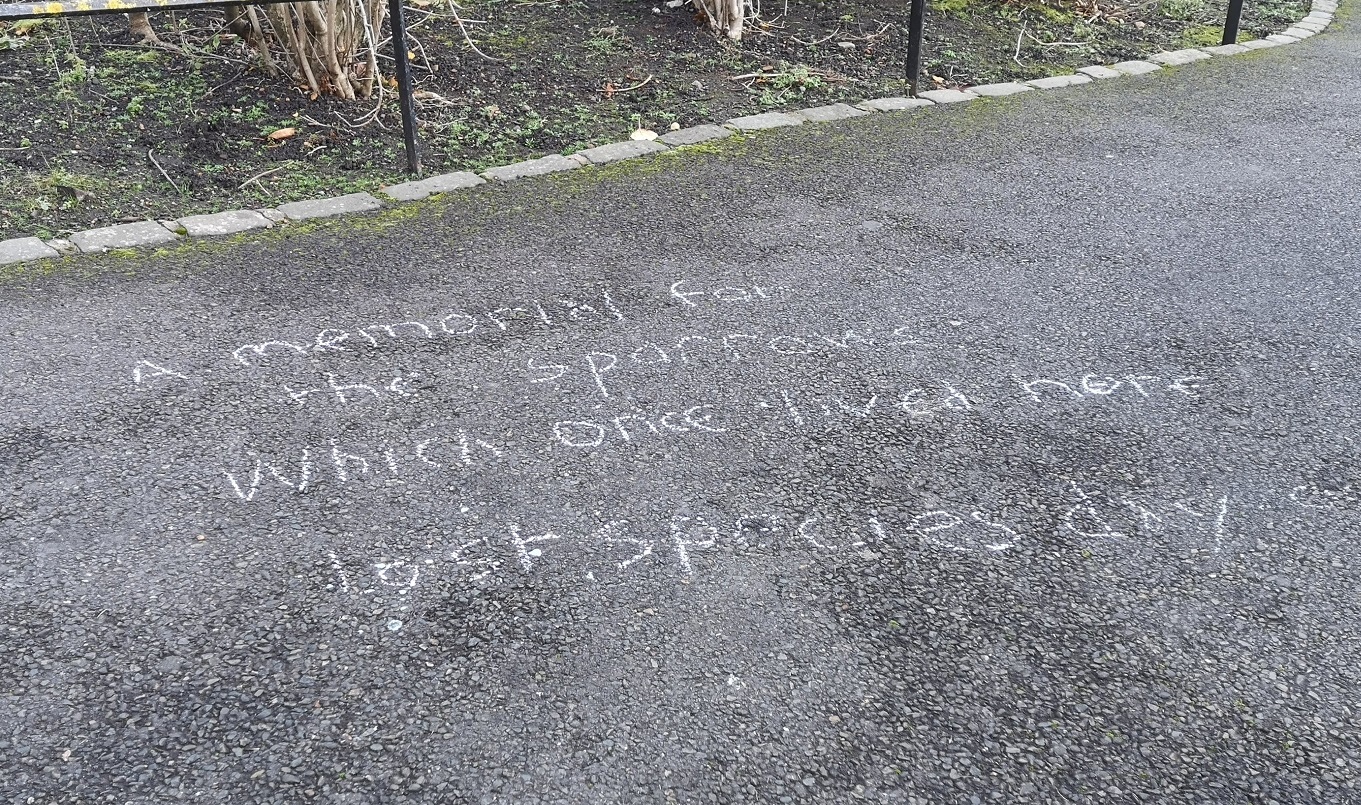 A memorial for
the sparrows
Which once lived here
lost species day